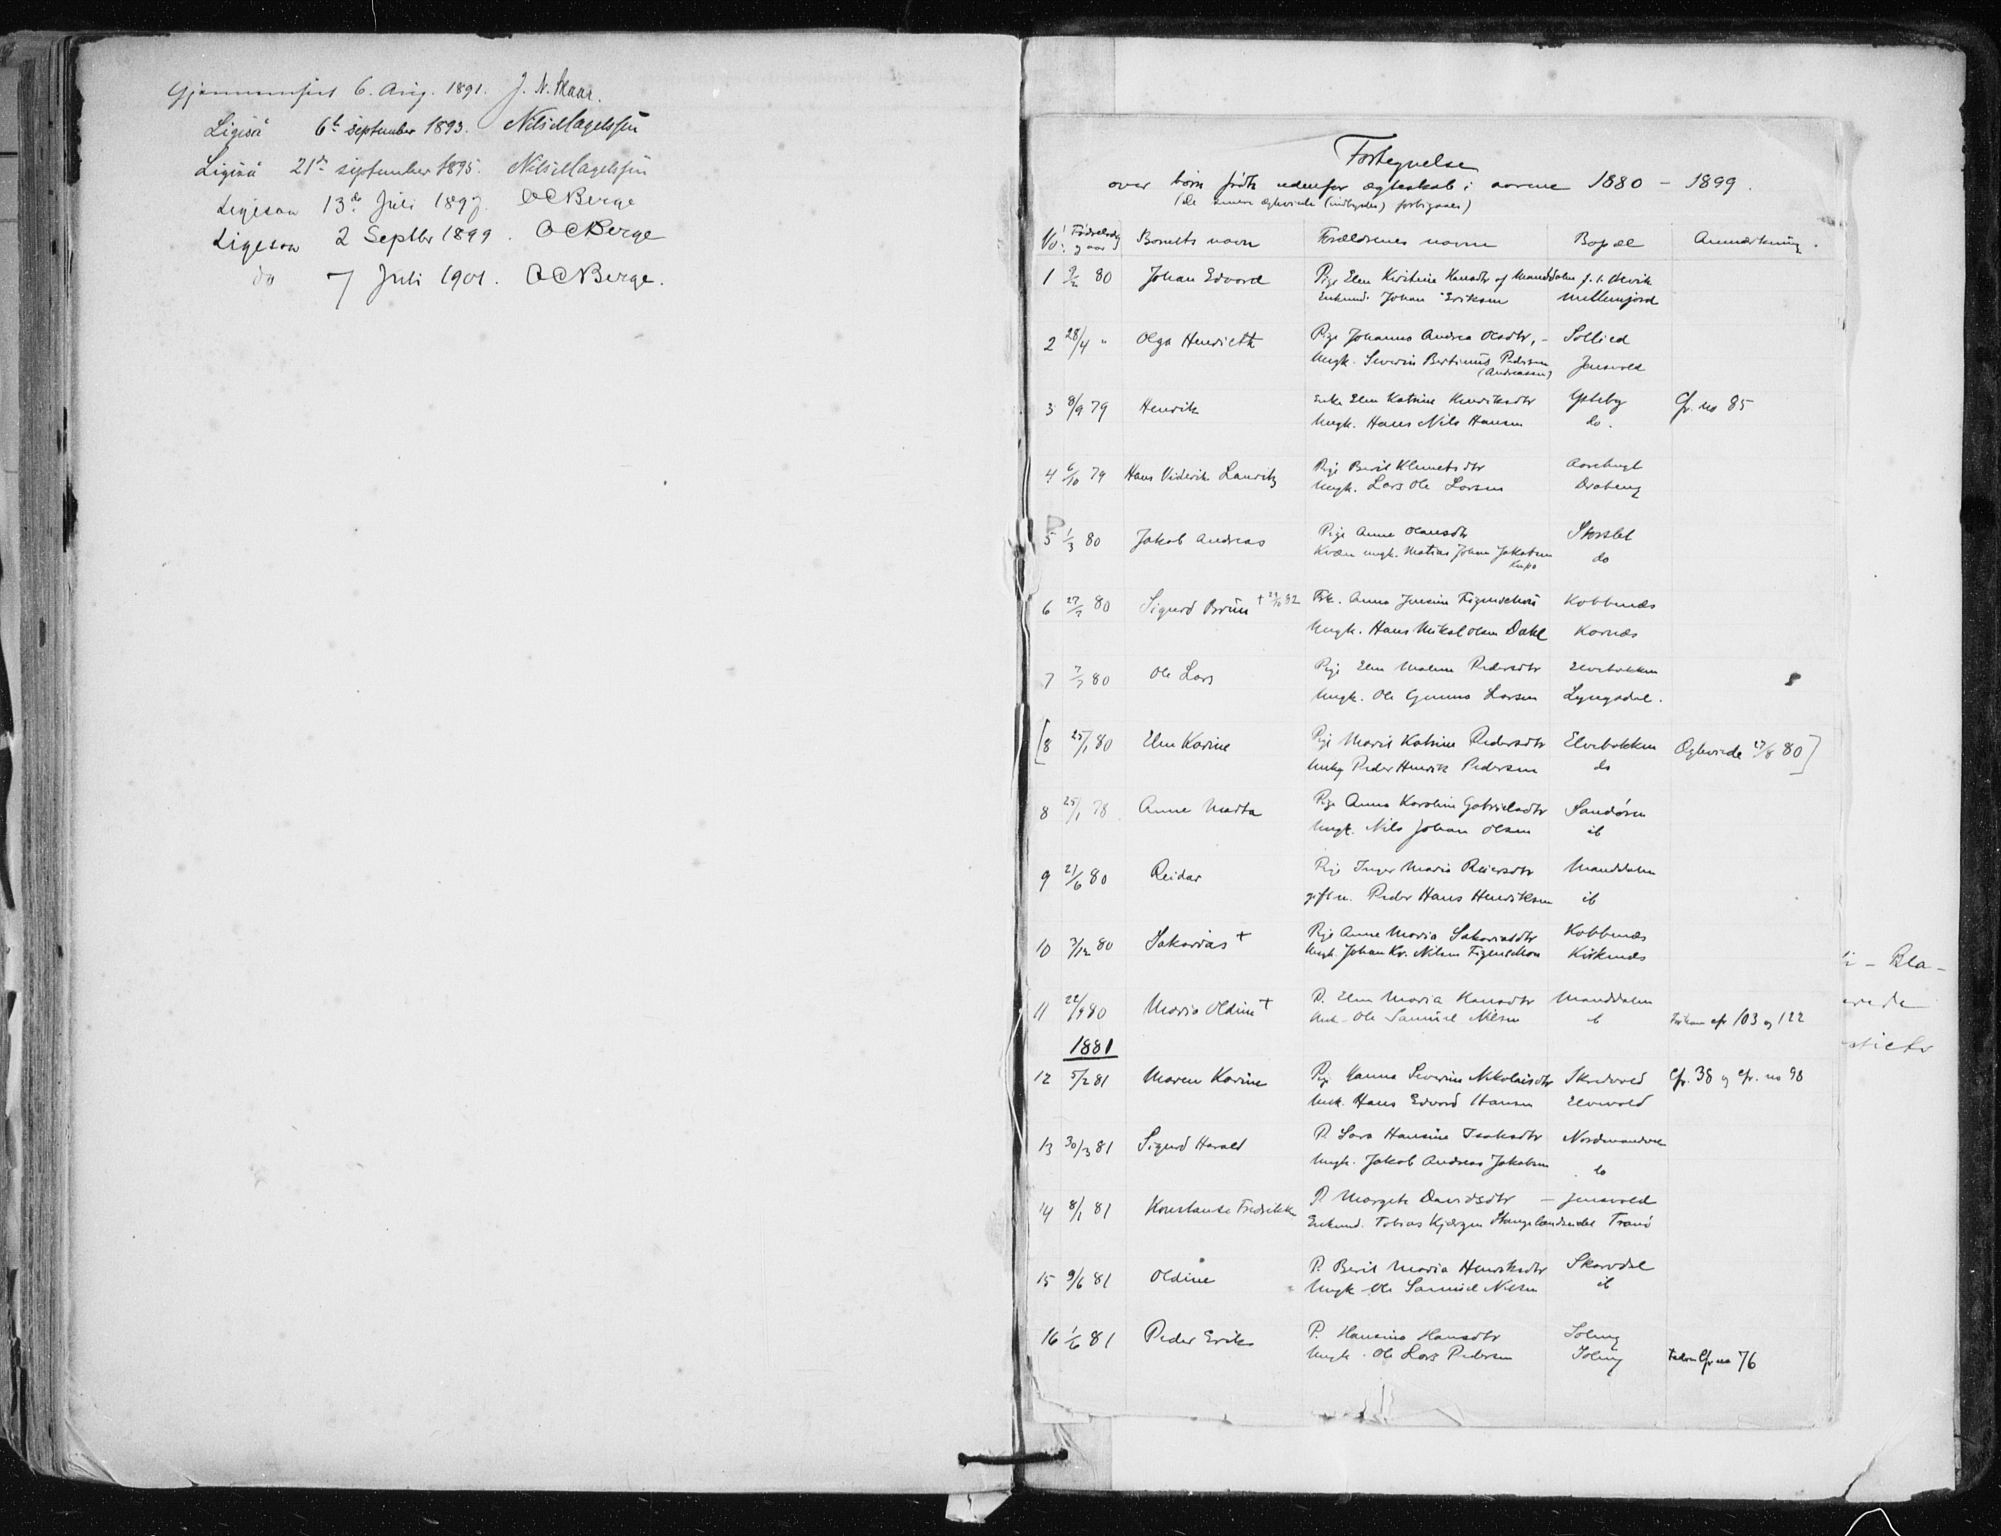 Gjennemseet 6. Aug. 1891. J. N. Skaar.
Ligesaa 6te september 1893. Nils Magelssen
Ligesaa 21de september 1895. Nils Magelssen
Ligesaa 13de Juli 1897. OCBerge
Ligesaa 2 Septbr 1899. OCBerge
do 7 Juli 1901. OCBerge.
Fortegnelse
over børn født udenfor ægteskab i aarene 1880 – 1899.
(de senere ægteviede (indbyrdes) forbigaaes)
No. Fødselsdag og aar Barnets navn Forældrenes navne Bopæl Anmærkning.
1 9/2 80 Johan Edvard Pige Elen Kirstine Hansdtr af Manddalen f. t. Olervik
Enkemd. Johan Eriksen Mellemjord
2 28/4 " Olga Henriette Pige Johanna Andrea Olsdtr, – Sollied
Ungk. Severin Bertinus Pedersen Jensvold
(Andreassen)
3 8/9 79 Henrik Enke Elen Katrine Henriksdtr Ysteby Cfr. no 85
Ungk. Hans Nils Hansen do.
4 6/10 79 Hans Viderik Lauritz Pige Berit Klemetsdtr
Ungk. Lars Ole Larsen
5 1/3 80 Jakob Andreas Pige Anne Olausdtr Storslet
Kvæn ungk. Matias Johan Jakobsen do
6 27/7 80 Sigurd Brun + 82 Frk. Anna Jensine Figenschou Kobbenæs
Ungk. Hans Mikal Olsen Dahl Kornæs
7 7/7 80 Ole Lars Pige Elen Malene Pedersdtr Elvebakken
Ungk. Ole Gunnus Larsen Lyngsdal.
[8 25/1 80 Elen Karine Pige Marit Katrine Pedersdtr Elvebakken Ægteviede 27/8 80]
Ungk Peder Henrik Pedersen do
8 25/1 78 Anne Marta Pige Anna Karoline Gabrielsdtr Sandøren
Ungk. Nils Johan Olsen ib
9 21/6 80 Reidar Pige Inger Maria Reiersdtr Manddalen
gift m. Peder Hans Henriksen ib
10 3/12 80 Sakarias + Pige Anne Maria Sakariasdtr Kobbenæs
Ungk. Johan Kr. Nilsen Figenschou Kirkenæs
11 22/9 80 Maria Oldine + P. Elen Maria Hansdtr Manddalen
Unk. Ole Samuel Nilsen ib cfr 103 og 122
1881
12 5/2 81 Maren Karine Pige Hanna Severine Nikolaisdtr Skredvold Cfr. 38 og cfr. no 98
Unk. Hans Edvard Hansen Elvevold
13 30/3 81 Sigurd Harald P. Sara Hansine Isaksdtr Nordmandvik
Ungk. Jakob Andreas Jakobsen do
14 8/1 81 Konstanse Fredrikke P. Margrete Davidsdtr – Jensvold
Enkemd. Tobias Kjærgen Stangelandsedet Tranø
15 9/6 81 Oldine P. Berit Maria Henriksdtr Skardal
Ungk Ole Samuel Nilsen ib
16 1/6 81 Peder Erik P. Hansine Hansdtr
Ungk. Ole Lars Pedersen Cfr no 76
– Bla –